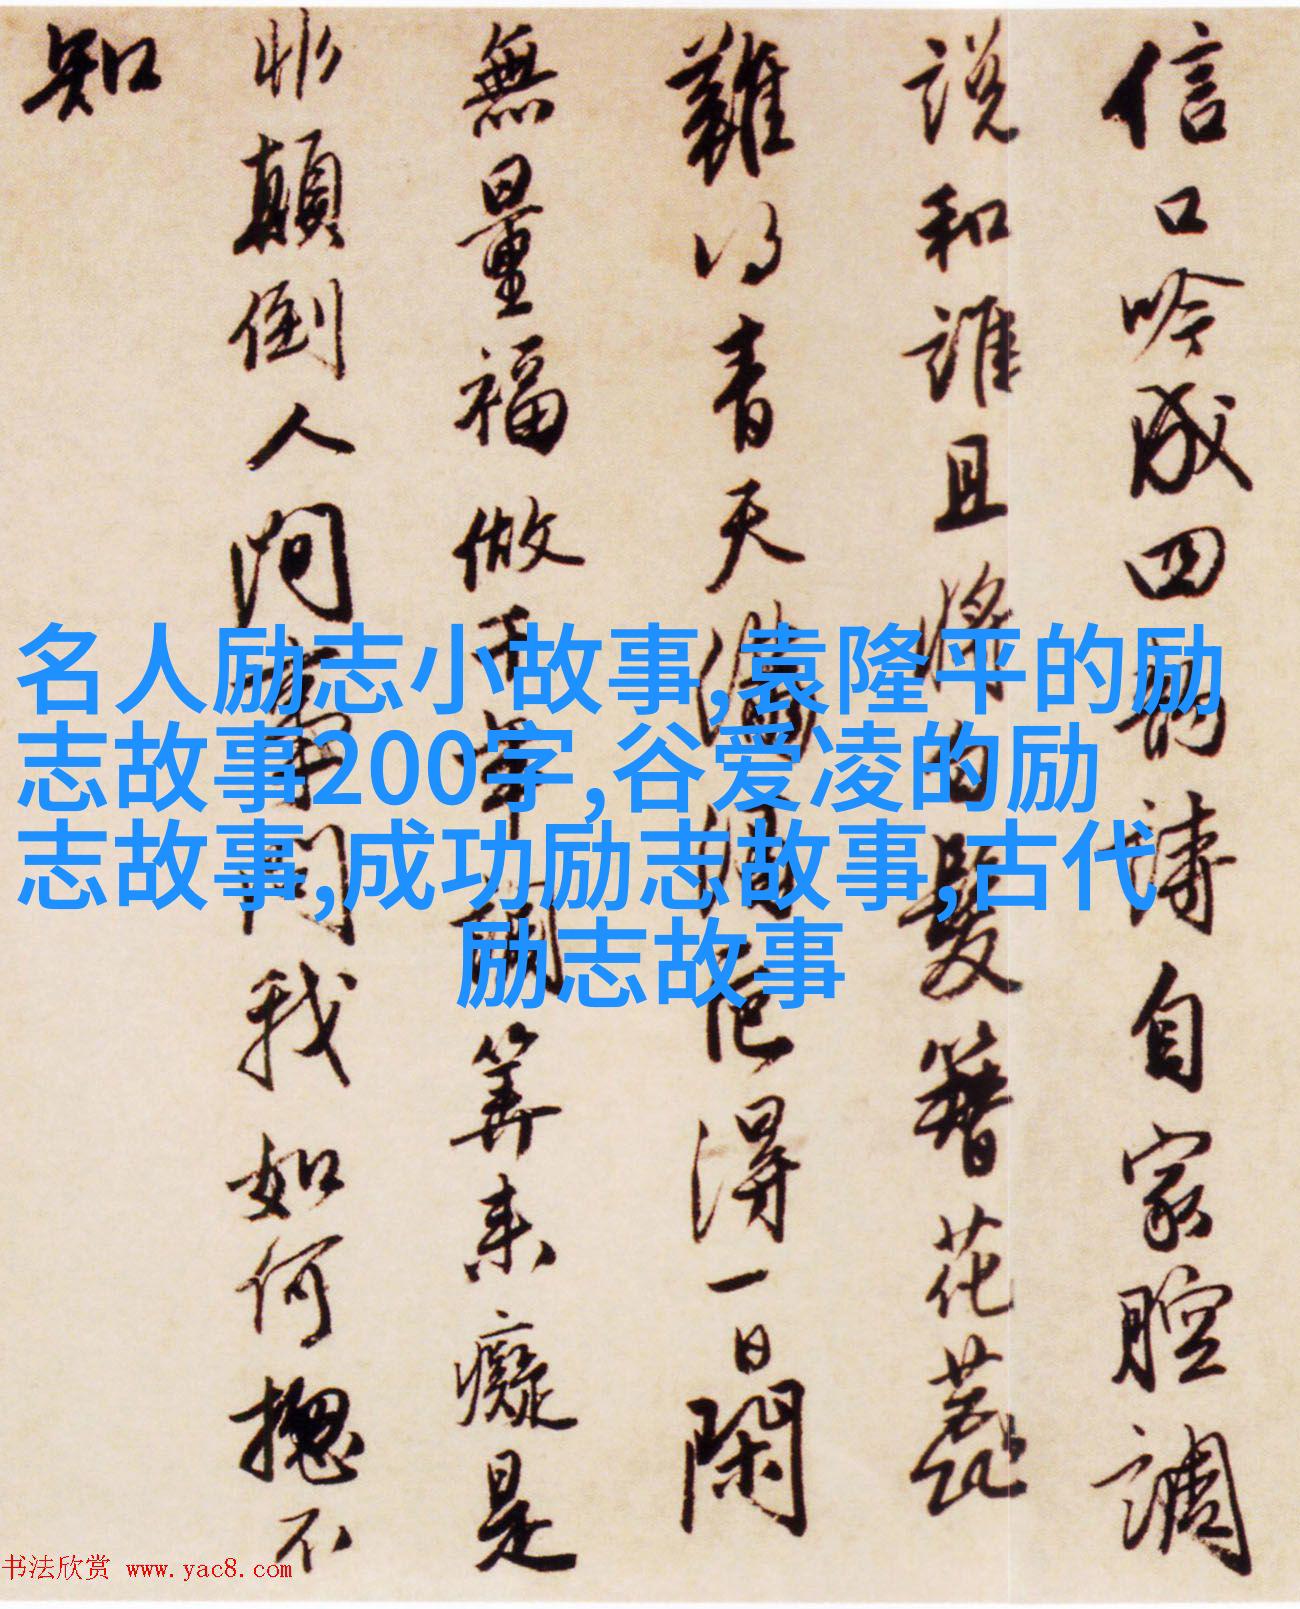 信口吟成四韵诗自家腔调
说和谁且将白发簪花蕊
难将青天满酒卮得一日闲
无量福做千年调算来痴是
非颠倒人间事问我如何揔不
知
名人励志小故事,袁隆平的励
志故事200字,谷爱凌的励
志故事,成功励志故事,古代
励志故事
书法欣赏 www.yac8.com